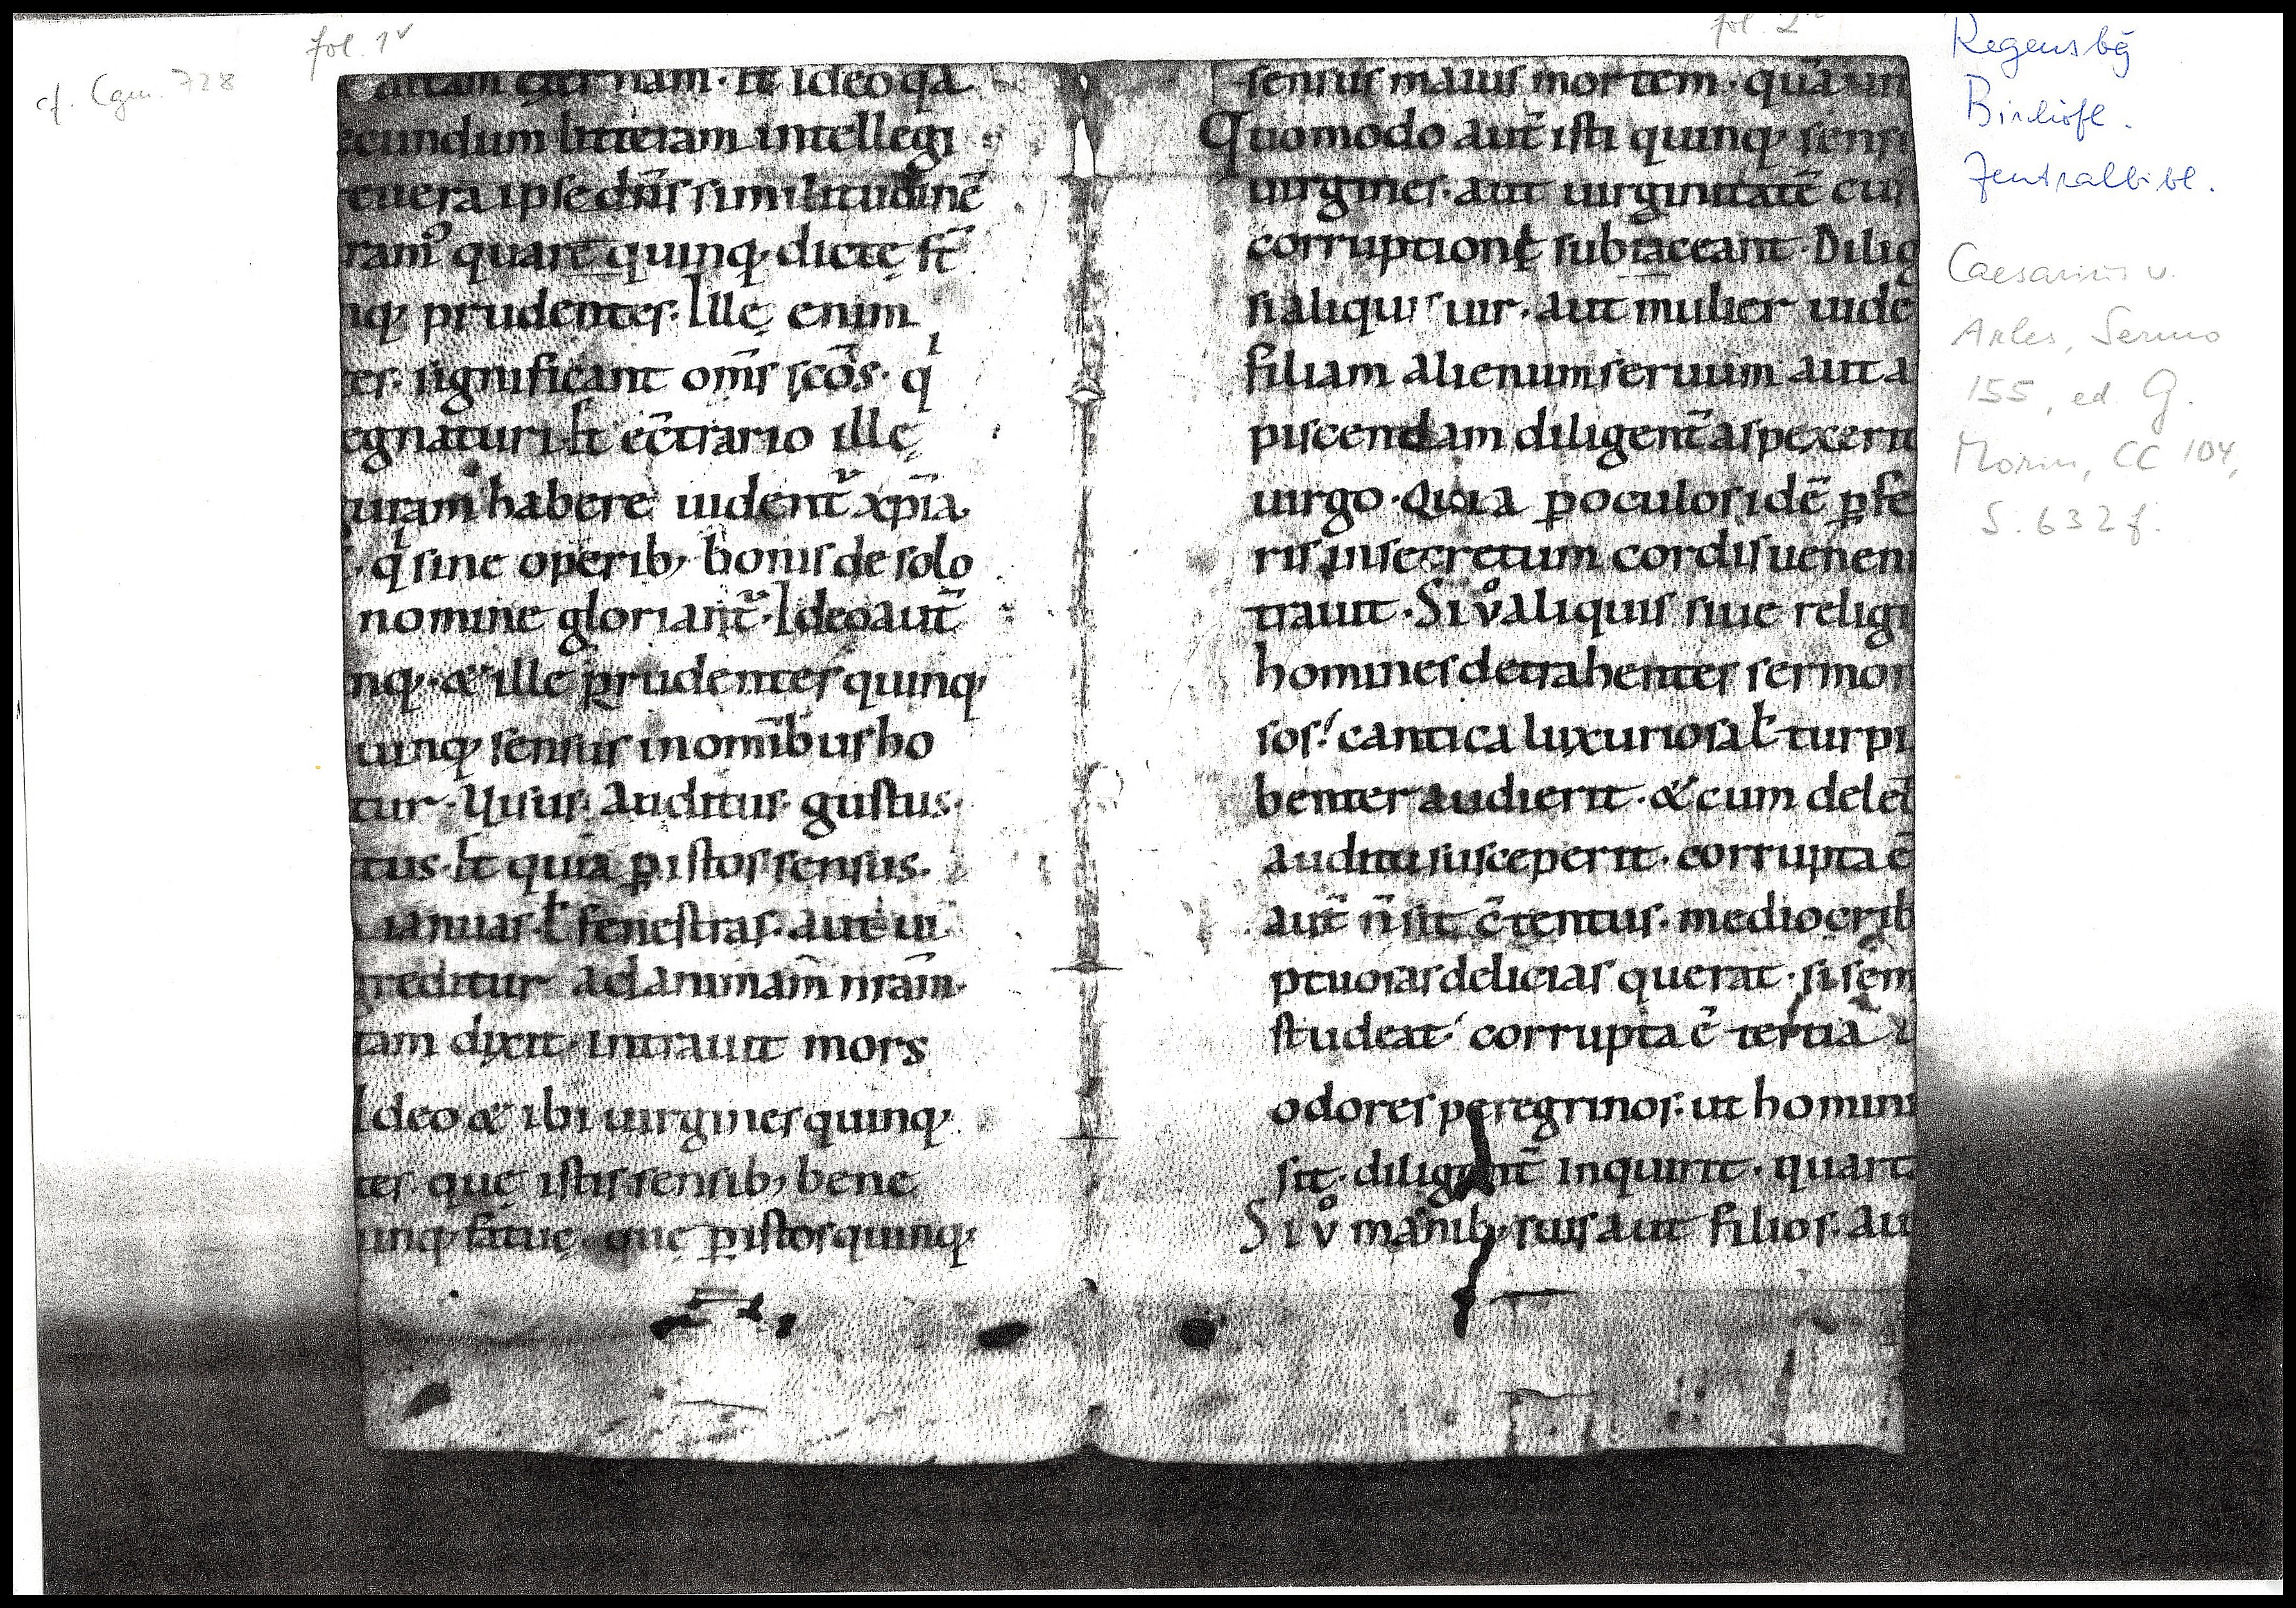 cf. Cgm. 728
fol. 1v
uitam ęternam · et ideo qa
ecundum litteram intellegi
euera ipse dn̄s similitudinē
ram᾽ quare quinq; dictę st̄
nq; prudentes. Illę enim
tes. significant om̄s sc̄os. qi
egnaturi st̄ ec̄trario illę
uiam habere uident᷑ xp̄ia
qi sine operib; bonis de solo
nomine gloriant᷑. Ideo aut̄
nq;. & ille prudentes quinq;
uinq; sensus in omīb us ho
tur. Uisus. Auditus. gustus.
tus. Et quia p̱ istos sensus.
ianuas ł fenestras. aut ui
reditur ad animam nr̄am.
tam dixit. intrauit mors
Ideo & ibi uirgines quinq;
tes quę istis sensib; bene
uinq; fatuę. que p̱ istos quinq;
fol. 2r
sensus maius mortem. quā un
Quomodo aut̄ isti quinq; sens
uirgines. aut uirginitatē cu
corruptionę subiaceant. Dilig
si aliquis uir. aut mulier uide
filiam alienum seruum aut a
piscendam diligent̄ aspexerit
uirgo. Quia p̱ oculos idē p̱ fe
ris in secretum cordis uenen
trauit. Si v̊ aliquis siue religi
homines detrahentes sermon
sos. cantica luxuriosa ł turpi
benter audierit. & cum delet
auditu susceperit. corrupta ē
aut̄ n̄ sit c̄tentus. mediocrib
ptuosas delicias querat. si sēm
studeat. corrupta ē tertia u
odores peregrinos. ut homini
sit. diligent̄ inquirit. quart
Si v̊ manib; suis aut filios. au
Regensbg
Bischöfl.
Zentralbibl.
Caesarius v.
Arles, Sermo
155, ed. G.
Morin, CC 104,
S. 632f.